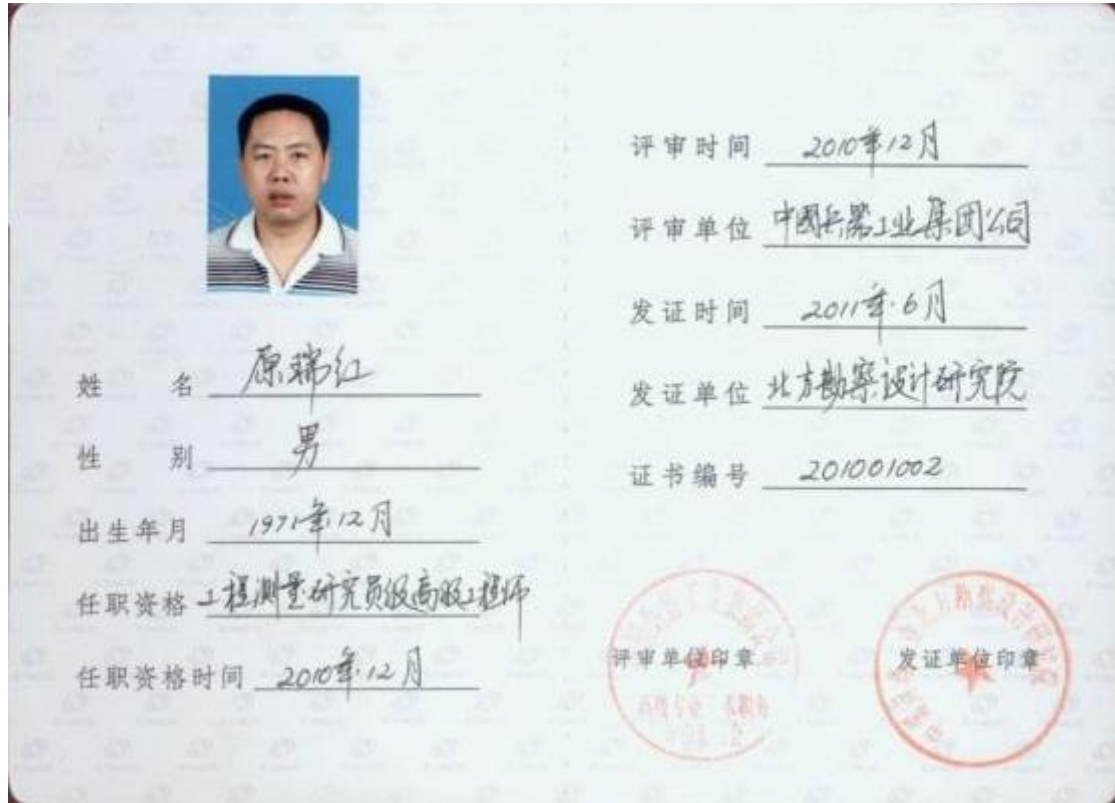 姓 名 原瑞红
性 别 男
出生年月 1971年12月
任职资格 工程测量研究员级高级工程师
任职资格时间 2010年12月
评审时间 2010年12月
评审单位 中國兵器工业集团公司
发证时间 2011年6月
发证单位 北方勘察设计研究院
证书编号 201001002
评审单位印章
发证单位印章